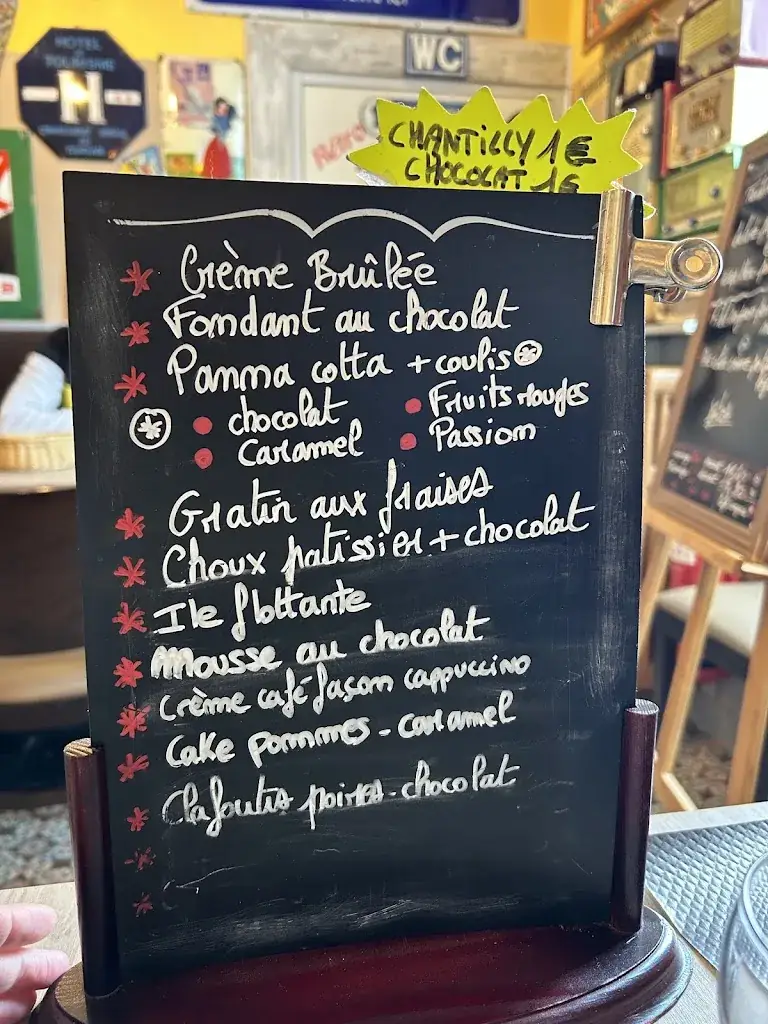 HOTEL
DE
TOURISME
H
WC
Rétro
CHANTILLY 1€
CHOCOLAT 1€
* Crème Brûlée
* Fondant au chocolat
* Panna cotta + coulis *
* • chocolat • Fruits rouges
• Caramel • Passion
* Gratin aux fraises
* Choux patissier + chocolat
* Ile flottante
* Mousse au chocolat
* Crème café façon cappuccino
* Cake pommes - caramel
* Clafoutis poires - chocolat